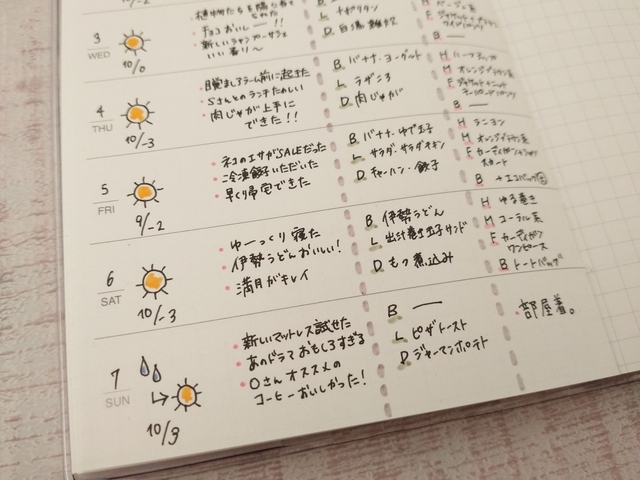 10/-2
3
WED
10/0
チョコおいしー!!
いい香り〜
L ナポリタン
D. 白湯雑炊
B ―
4
THU
10/-3
目覚ましアラーム前に起きた
Sさんとのランチたのしい
肉じゃが上手に
できた!!
B. バナナ・ヨーグルト
L ラザニア
D. 肉じゃが
H ハーフアップ
M オレンジブラウン系
B ―
5
FRI
9/-2
ネコのエサがSALEだった
冷凍餃子いただいた
早くり帰宅できた
B. バナナ・ゆで玉子
L サラダ・サラダチキン
D. チャーハン・餃子
H
M オレンジブラウン系
F
スカート
B +エコバッグ
6
SAT
10/-3
ゆーっくり寝た
伊勢うどんおいしい!
満月がキレイ
B. 伊勢うどん
L 出汁巻き玉子サンド
D. もつ煮込み
H ゆる巻き
M コーラル系
F カーディガン
ワンピース
B トートバッグ
7
SUN
10/3
新しいマットレス試せた
あのドラマおもしろすぎる
Oさんオススメの
コーヒーおいしかった!
B ―
L ピザトースト
D ジャーマンポテト
部屋着。